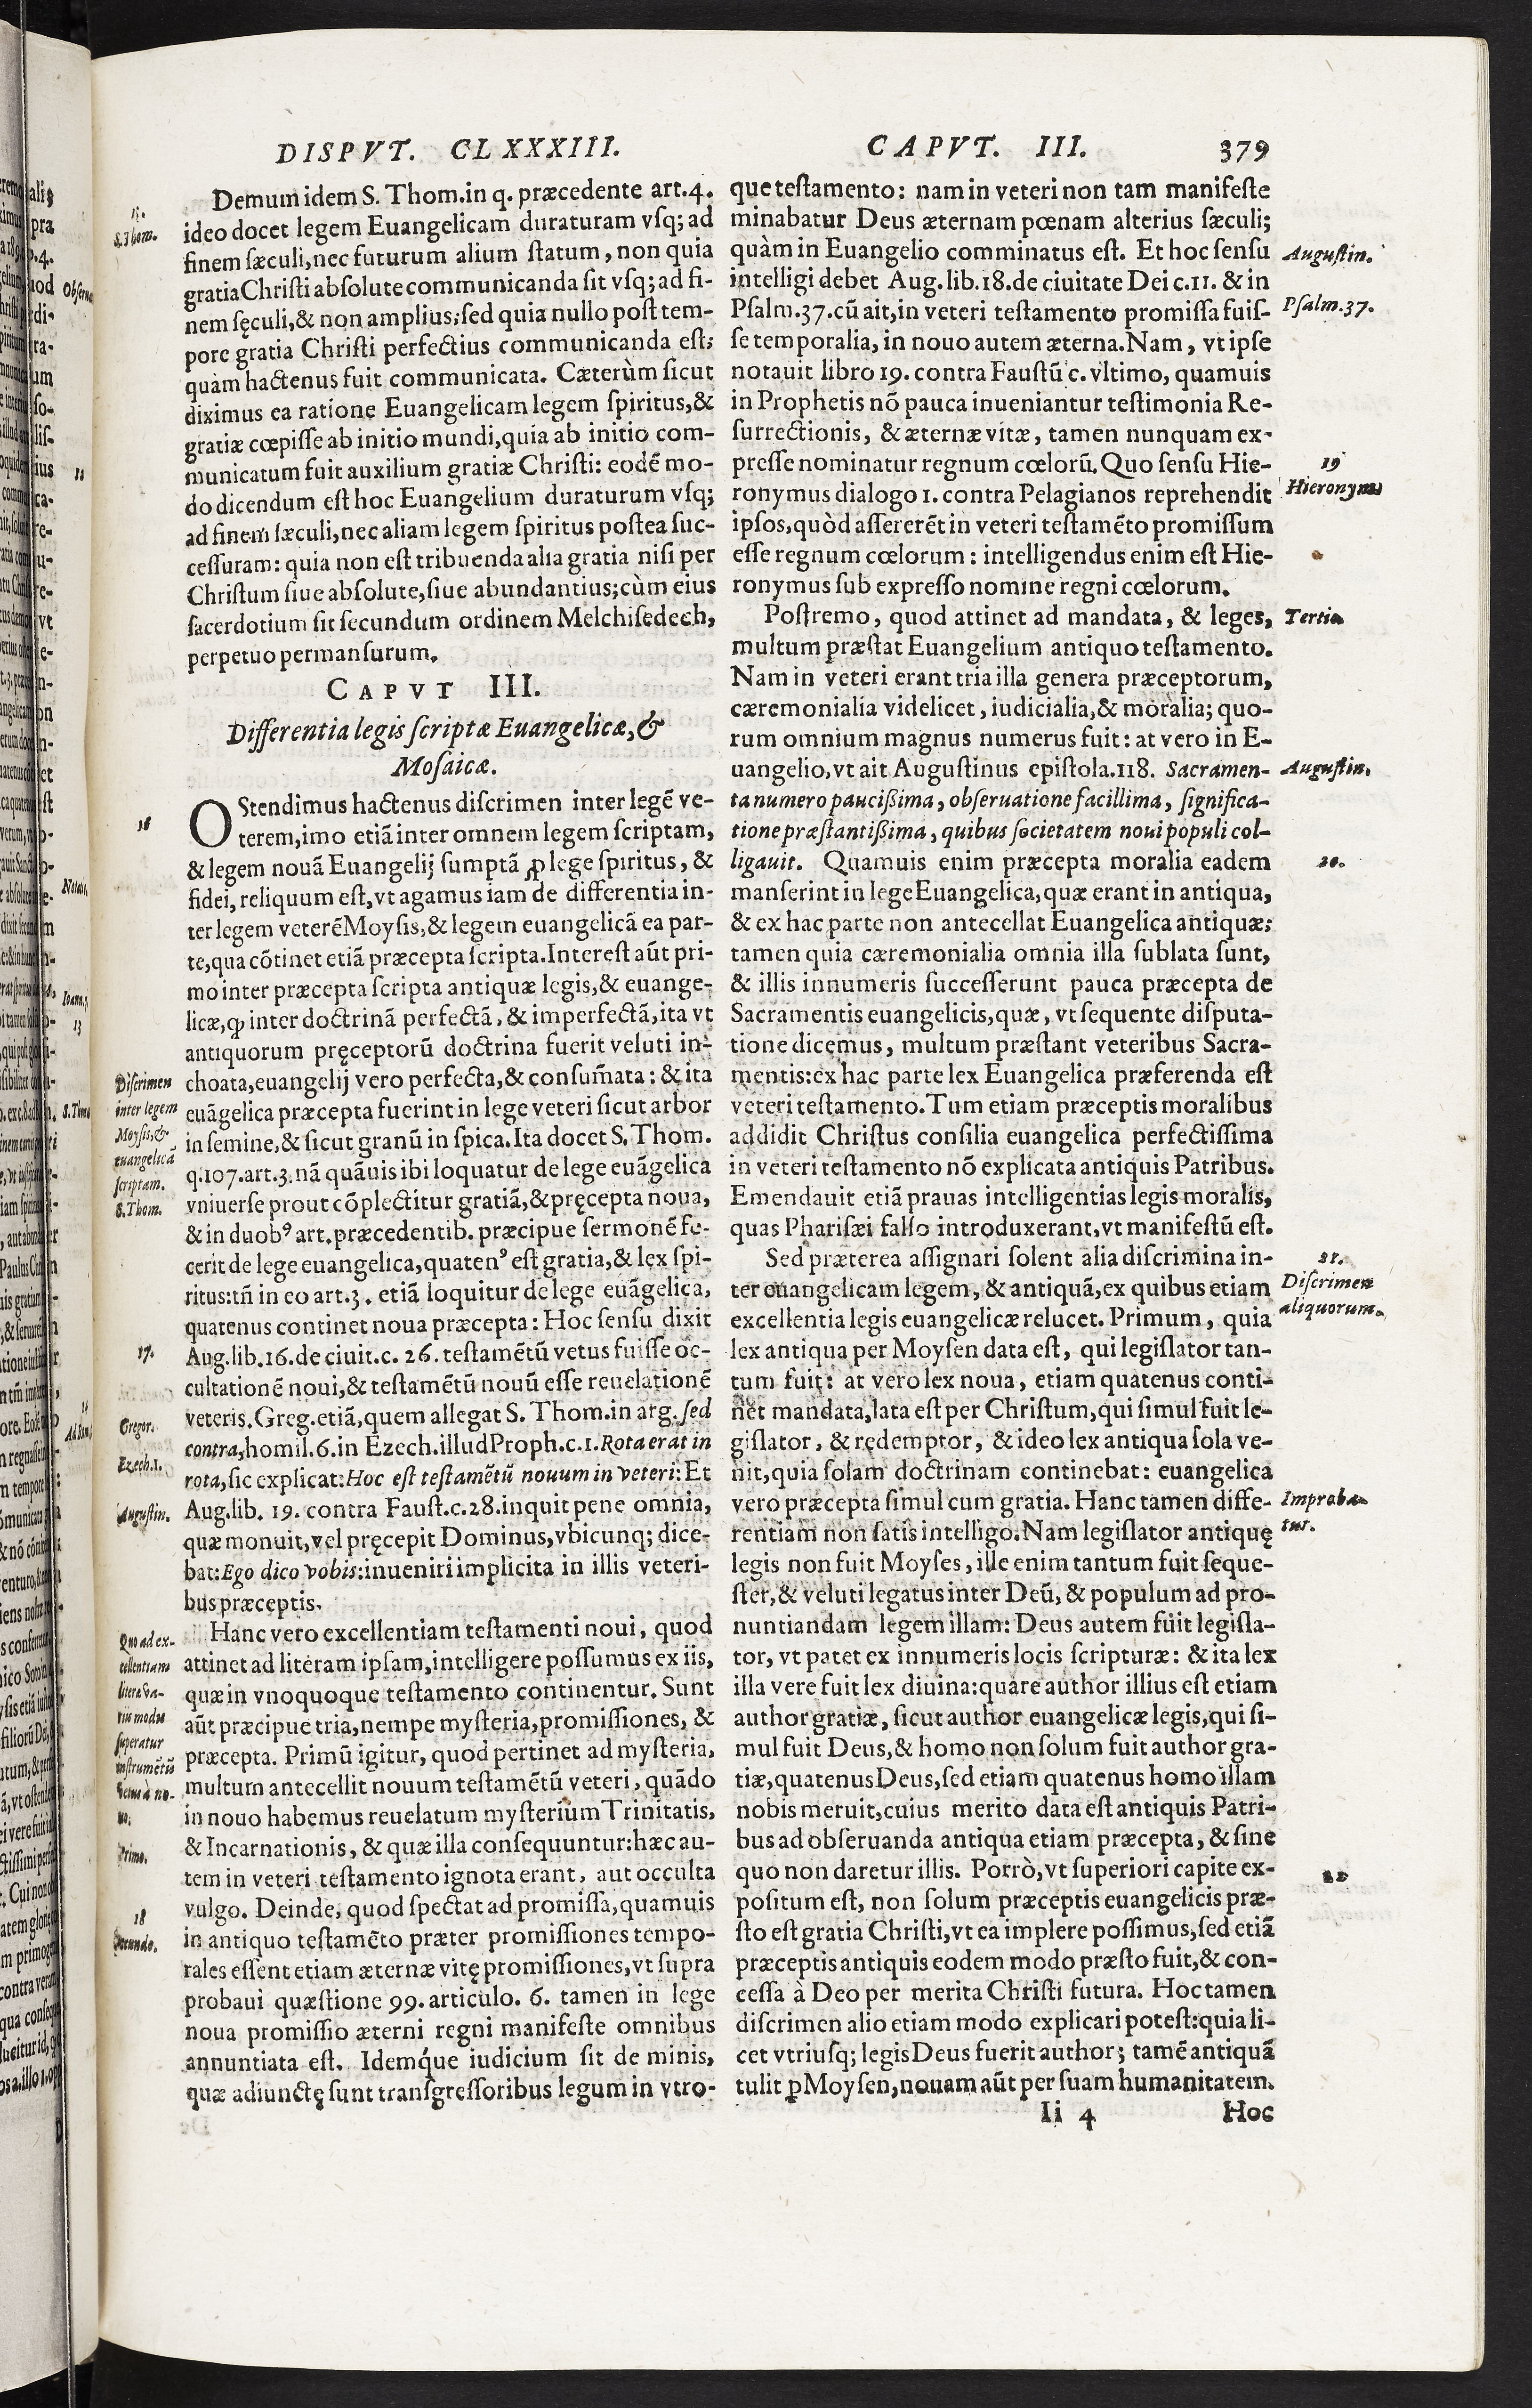 DISPVT. CLXXXIII.
CAPVT. III. 379
Demum idem S. Thom. in q. præcedente art. 4.
ideo docet legem Euangelicam duraturam vſq; ad
finem ſæculi, nec futurum alium ſtatum, non quia
gratia Chriſti abſolute communicanda ſit vſq; ad fi-
nem ſęculi, & non amplius; ſed quia nullo poſt tem-
pore gratia Chriſti perfectius communicanda eſt;
quàm hactenus fuit communicata. Cæterùm ſicut
diximus ea ratione Euangelicam legem ſpiritus, &
gratiæ cœpiſſe ab initio mundi, quia ab initio com-
municatum fuit auxilium gratiæ Chriſti: eodẽ mo-
do dicendum eſt hoc Euangelium duraturum vſq;
ad finem ſæculi, nec aliam legem ſpiritus poſtea ſuc-
ceſſuram: quia non eſt tribuenda alia gratia niſi per
Chriſtum ſiue abſolute, ſiue abundantius; cùm eius
ſacerdotium ſit ſecundum ordinem Melchiſedech,
perpetuo permanſurum.
CAPVT III.
Differentia legis ſcriptæ Euangelicæ, &
Moſaicæ.
OStendimus hactenus diſcrimen inter legẽ ve-
terem, imo etiã inter omnem legem ſcriptam,
& legem nouã Euangelij ſumptã ꝓ lege ſpiritus, &
fidei, reliquum eſt, vt agamus iam de differentia in-
ter legem veterẽ Moyſis, & legem euangelicã ea par-
te, qua cõtinet etiã præcepta ſcripta. Intereſt aũt pri-
mo inter præcepta ſcripta antiquæ legis, & euange-
licæ, ꝙ inter doctrinã perfectã, & imperfectã, ita vt
antiquorum pręceptorũ doctrina fuerit veluti in-
choata, euangelij vero perfecta, & conſum̃ata: & ita
euãgelica præcepta fuerint in lege veteri ſicut arbor
in ſemine, & ſicut granũ in ſpica. Ita docet S. Thom.
q. 107. art. 3. nã quãuis ibi loquatur de lege euãgelica
vniuerſe prout cõplectitur gratiã, & pręcepta noua,
& in duobꝰ art. præcedentib. præcipue ſermonẽ fe-
cerit de lege euangelica, quatenꝰ eſt gratia, & lex ſpi-
ritus: tñ in eo art. 3. etiã loquitur de lege euãgelica,
quatenus continet noua præcepta: Hoc ſenſu dixit
Aug. lib. 16. de ciuit. c. 26. teſtamẽtũ vetus fuiſſe oc-
cultationẽ noui, & teſtamẽtũ nouũ eſſe reuelationẽ
veteris. Greg. etiã, quem allegat S. Thom. in arg. ſed
contra, homil. 6. in Ezech. illud Proph. c. 1. Rota erat in
rota, ſic explicat: Hoc eſt teſtamẽtũ nouum in veteri: Et
Aug. lib. 19. contra Fauſt. c. 28. inquit pene omnia,
quæ monuit, vel pręcepit Dominus, vbicunq; dice-
bat: Ego dico vobis: inueniri implicita in illis veteri-
bus præceptis.
Hanc vero excellentiam teſtamenti noui, quod
attinet ad literam ipſam, intelligere poſſumus ex iis,
quæ in vnoquoque teſtamento continentur. Sunt
aũt præcipue tria, nempe myſteria, promiſſiones, &
præcepta. Primũ igitur, quod pertinet ad myſteria,
multum antecellit nouum teſtamẽtũ veteri, quãdo
in nouo habemus reuelatum myſterium Trinitatis,
& Incarnationis, & quæ illa conſequuntur: hæc au-
tem in veteri teſtamento ignota erant, aut occulta
vulgo. Deinde, quod ſpectat ad promiſſa, quamuis
in antiquo teſtamẽto præter promiſſiones tempo-
rales eſſent etiam æternæ vitę promiſſiones, vt ſupra
probaui quæſtione 99. articulo. 6. tamen in lege
noua promiſſio æterni regni manifeſte omnibus
annuntiata eſt. Idemq́ue iudicium ſit de minis,
quæ adiunctę ſunt tranſgreſſoribus legum in vtro-
15.
S. Thom.
16
Diſcrimen
inter legem
Moyſis, &
euangelicã
ſcriptam.
S. Thom.
17.
Gregor.
Ezech. 1.
Auguſtin.
Quo ad ex-
cellentiam
ſuperatur
Primo.
18
Secundo.
que teſtamento: nam in veteri non tam manifeſte
minabatur Deus æternam pœnam alterius ſæculi;
quàm in Euangelio comminatus eſt. Et hoc ſenſu
intelligi debet Aug. lib. 18. de ciuitate Dei c. 11. & in
Pſalm. 37. cũ ait, in veteri teſtamento promiſſa fuiſ-
ſe temporalia, in nouo autem æterna. Nam, vt ipſe
notauit libro 19. contra Fauſtũ c. vltimo, quamuis
in Prophetis nõ pauca inueniantur teſtimonia Re-
ſurrectionis, & æternæ vitæ, tamen nunquam ex-
preſſe nominatur regnum cœlorũ. Quo ſenſu Hie-
ronymus dialogo 1. contra Pelagianos reprehendit
ipſos, quòd aſſererẽt in veteri teſtamẽto promiſſum
eſſe regnum cœlorum: intelligendus enim eſt Hie-
ronymus ſub expreſſo nomine regni cœlorum.
Poſtremo, quod attinet ad mandata, & leges,
multum præſtat Euangelium antiquo teſtamento.
Nam in veteri erant tria illa genera præceptorum,
cæremonialia videlicet, iudicialia, & moralia; quo-
rum omnium magnus numerus fuit: at vero in E-
uangelio, vt ait Auguſtinus epiſtola. 118. Sacramen-
ta numero pauciſsima, obſeruatione facillima, ſignifica-
tione præſtantiſsima, quibus ſocietatem noui populi col-
ligauit. Quamuis enim præcepta moralia eadem
manſerint in lege Euangelica, quæ erant in antiqua,
& ex hac parte non antecellat Euangelica antiquæ;
tamen quia cæremonialia omnia illa ſublata ſunt,
& illis innumeris ſucceſſerunt pauca præcepta de
Sacramentis euangelicis, quæ, vt ſequente diſputa-
tione dicemus, multum præſtant veteribus Sacra-
mentis: ex hac parte lex Euangelica præferenda eſt
veteri teſtamento. Tum etiam præceptis moralibus
addidit Chriſtus conſilia euangelica perfectiſſima
in veteri teſtamento nõ explicata antiquis Patribus.
Emendauit etiã prauas intelligentias legis moralis,
quas Phariſæi falſo introduxerant, vt manifeſtũ eſt.
Sed præterea aſſignari ſolent alia diſcrimina in-
ter euangelicam legem, & antiquã, ex quibus etiam
excellentia legis euangelicæ relucet. Primum, quia
lex antiqua per Moyſen data eſt, qui legiſlator tan-
tum fuit: at vero lex noua, etiam quatenus conti-
net mandata, lata eſt per Chriſtum, qui ſimul fuit le-
giſlator, & redemptor, & ideo lex antiqua ſola ve-
nit, quia ſolam doctrinam continebat: euangelica
vero præcepta ſimul cum gratia. Hanc tamen diffe-
rentiam non ſatis intelligo. Nam legiſlator antiquę
legis non fuit Moyſes, ille enim tantum fuit ſeque-
ſter, & veluti legatus inter Deũ, & populum ad pro-
nuntiandam legem illam: Deus autem fuit legiſla-
tor, vt patet ex innumeris locis ſcripturæ: & ita lex
illa vere fuit lex diuina: quare author illius eſt etiam
author gratiæ, ſicut author euangelicæ legis, qui ſi-
mul fuit Deus, & homo non ſolum fuit author gra-
tiæ, quatenus Deus, ſed etiam quatenus homo illam
nobis meruit, cuius merito data eſt antiquis Patri-
bus ad obſeruanda antiqua etiam præcepta, & ſine
quo non daretur illis. Porrò, vt ſuperiori capite ex-
poſitum eſt, non ſolum præceptis euangelicis præ-
ſto eſt gratia Chriſti, vt ea implere poſſimus, ſed etiã
præceptis antiquis eodem modo præſto fuit, & con-
ceſſa à Deo per merita Chriſti futura. Hoc tamen
diſcrimen alio etiam modo explicari poteſt: quia li-
cet vtriuſq; legis Deus fuerit author; tamẽ antiquã
tulit ꝑ Moyſen, nouam aũt per ſuam humanitatem.
Ii 4 Hoc
Auguſtin.
Pſalm. 37.
19
Hieronym.
Tertia
Auguſtin.
20.
21.
Diſcrimen
aliquorum.
Improba-
tur.
22